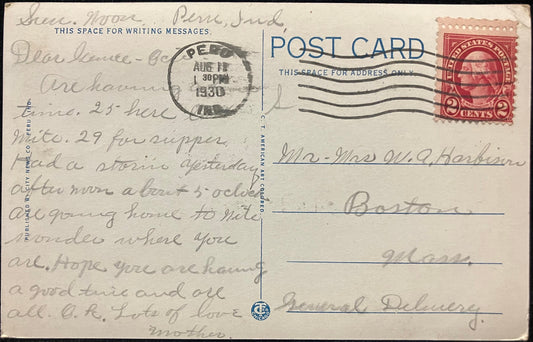 Sun. Noon. Peru, Ind.
THIS SPACE FOR WRITING MESSAGES.
Dear
Are having
time. 25 here
Nite. 29 for supper.
Had a storm yesterday
after noon about 5 oclock
are going home to nite
wonder where you
are. Hope you are having
a good time and are
all. O.K. Lots of love
Mother.
PUBLISHED BY CITY NEWS CO., PERU, IND.
C. T. AMERICAN ART COLORED
PERU
AUG
30 PM
1930
IND.
POST CARD
THIS SPACE FOR ADDRESS ONLY
UNITED STATES POSTAGE
2 CENTS 2
Mr. - Mrs W. A. Harbison
Boston
Mass.
General Delivery